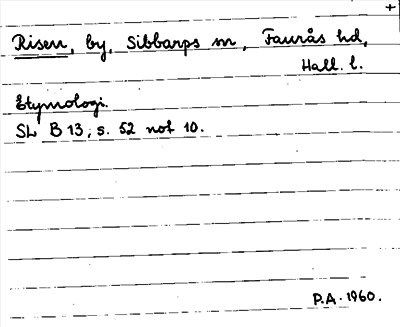 +
Risen, by, Sibbarps sn, Faurås hd,
Hall. l.
Etymologi.
SL B 13, s. 52 not 10.
P.A. 1960.